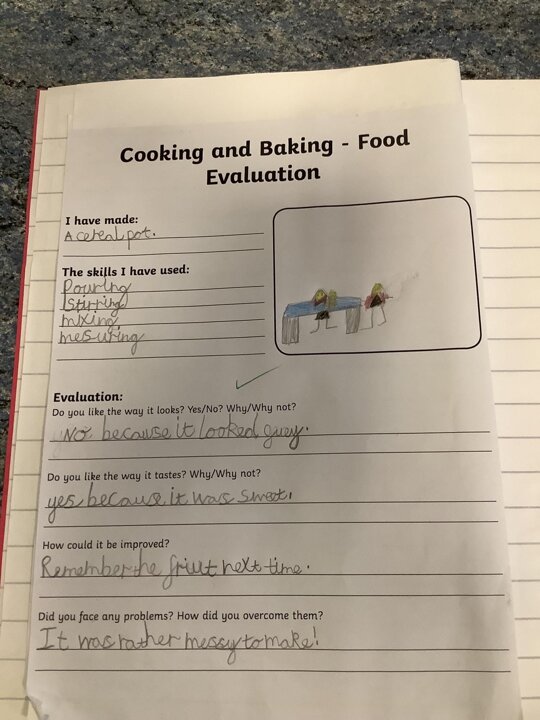 Cooking and Baking - Food
Evaluation
I have made:
A cereal pot.
The skills I have used:
Pouring
Stirring
mixing
mesuring
Evaluation:
Do you like the way it looks? Yes/No? Why/Why not?
No because it looked guey.
Do you like the way it tastes? Why/Why not?
yes because it was sweet.
How could it be improved?
Remember the friut next time.
Did you face any problems? How did you overcome them?
It was rather messy to make!